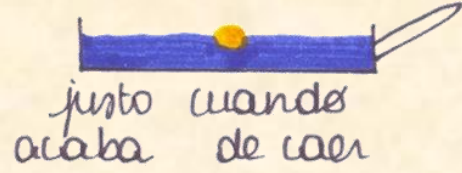 justo cuando
acaba de caer